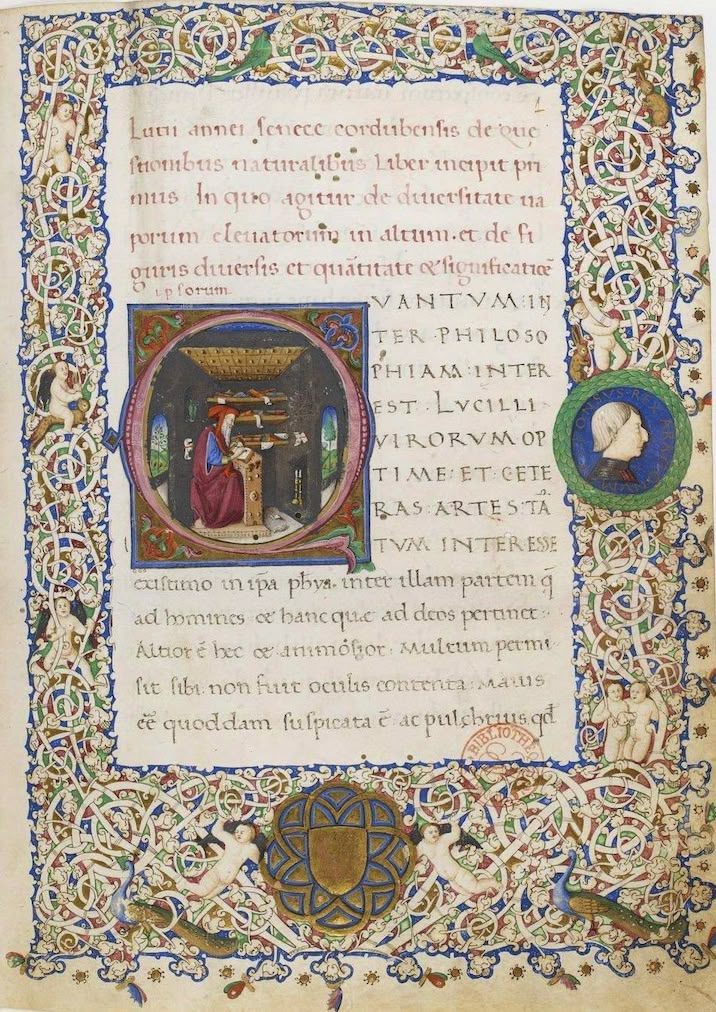 1
Lucii annei senece cordubensis de que
stionibus naturalibus Liber incipit pri
mus In quo agitur de diversitate va
porum elevatorum in altum. et de fi
guris diversis et quãtitate & significatiõe
ipsorum
QVANTVM:IN
TER·PHILOSO
PHIAM:INTER
EST·LVCILLI·
VIRORVM OP
TIME:ET·CETE
RAS:ARTES:TÃ
TVM INTERESSE
existimo in ipã phya. inter illam partem q̃
ad homines & hanc quæ ad deos pertinet:
Altior ẽ hec & animosior: Multum permi
sit sibi: non fuit oculis contenta: Maius
eẽ quoddam suspicata ẽ ac pulchrius qđ
BIBLIOTHE